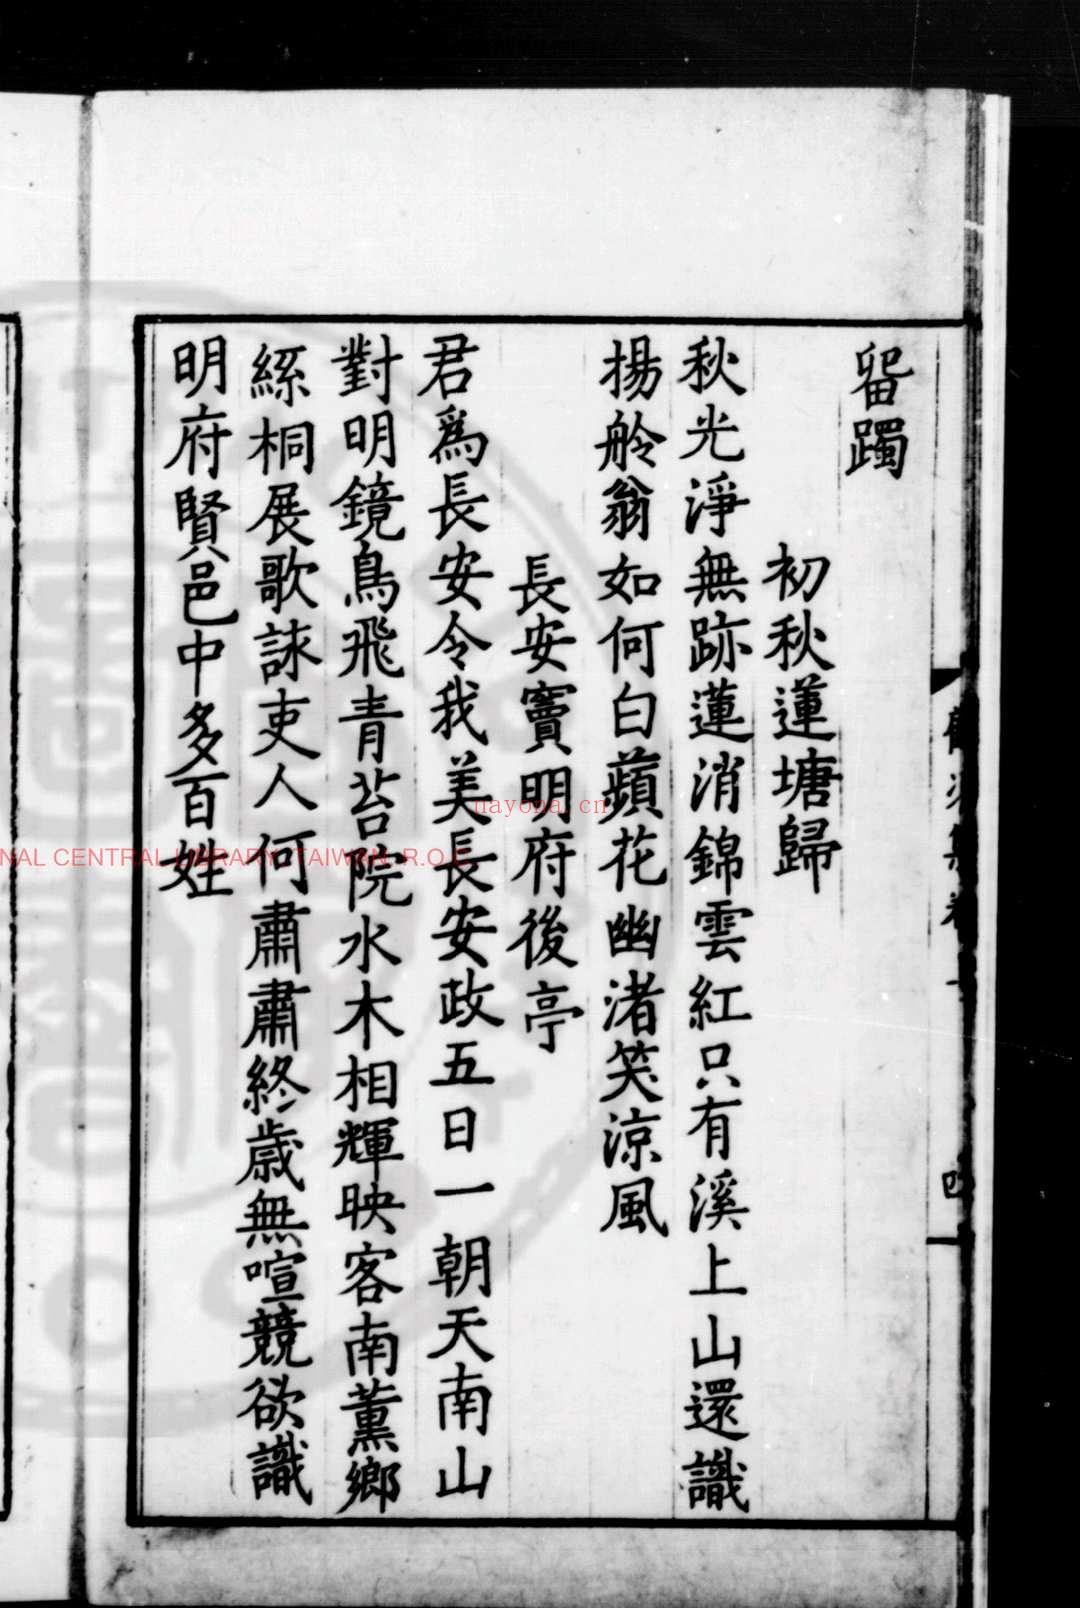 留躅
初秋蓮塘歸
秋光淨無跡蓮消錦雲紅只有溪上山還識
揚舲翁如何白蘋花幽渚笑涼風
長安竇明府後亭
君爲長安令我美長安政五日一朝天南山
對明鏡鳥飛青苔院水木相輝映客南薰鄉
絲桐展歌詠吏人何肅肅終歲無喧競欲識
明府賢邑中多百姓
四
nayona.cn
NAL CENTRAL LIBRARY, TAIWAN, R.O.C.